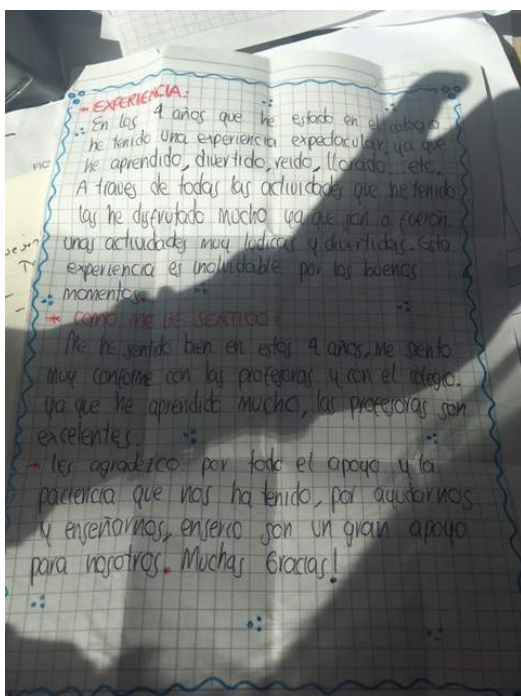 * EXPERIENCIA:
En los 4 años que he estado en el colegio
he tenido una experiencia expectacular, ya que
he aprendido, divertido, reido, llorado... etc.
A traves de todas las actividades que he tenido
las he disfrutado mucho ya que son o fueron
unas actividades muy ludicas y divertidas. esta
experiencia es inolvidable por los buenos
momentos.
* COMO ME HE SENTIDO:
Me he sentido bien en estos 4 años, me siento
muy conforme con las profesoras y con el colegio.
ya que he aprendido mucho, las profesoras son
excelentes.
* les agradezco por todo el apoyo y la
paciencia que nos ha tenido, por ayudarnos
y enseñarnos, enserio son un gran apoyo
para nosotros. Muchas Gracias!